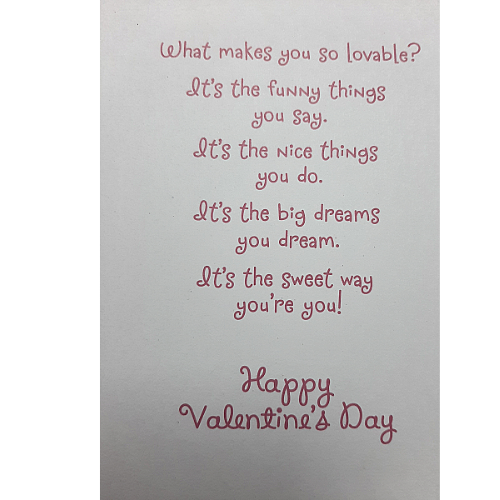 What makes you so lovable?
It's the funny things
you say.
It's the nice things
you do.
It's the big dreams
you dream.
It's the sweet way
you're you!
Happy
Valentine's Day